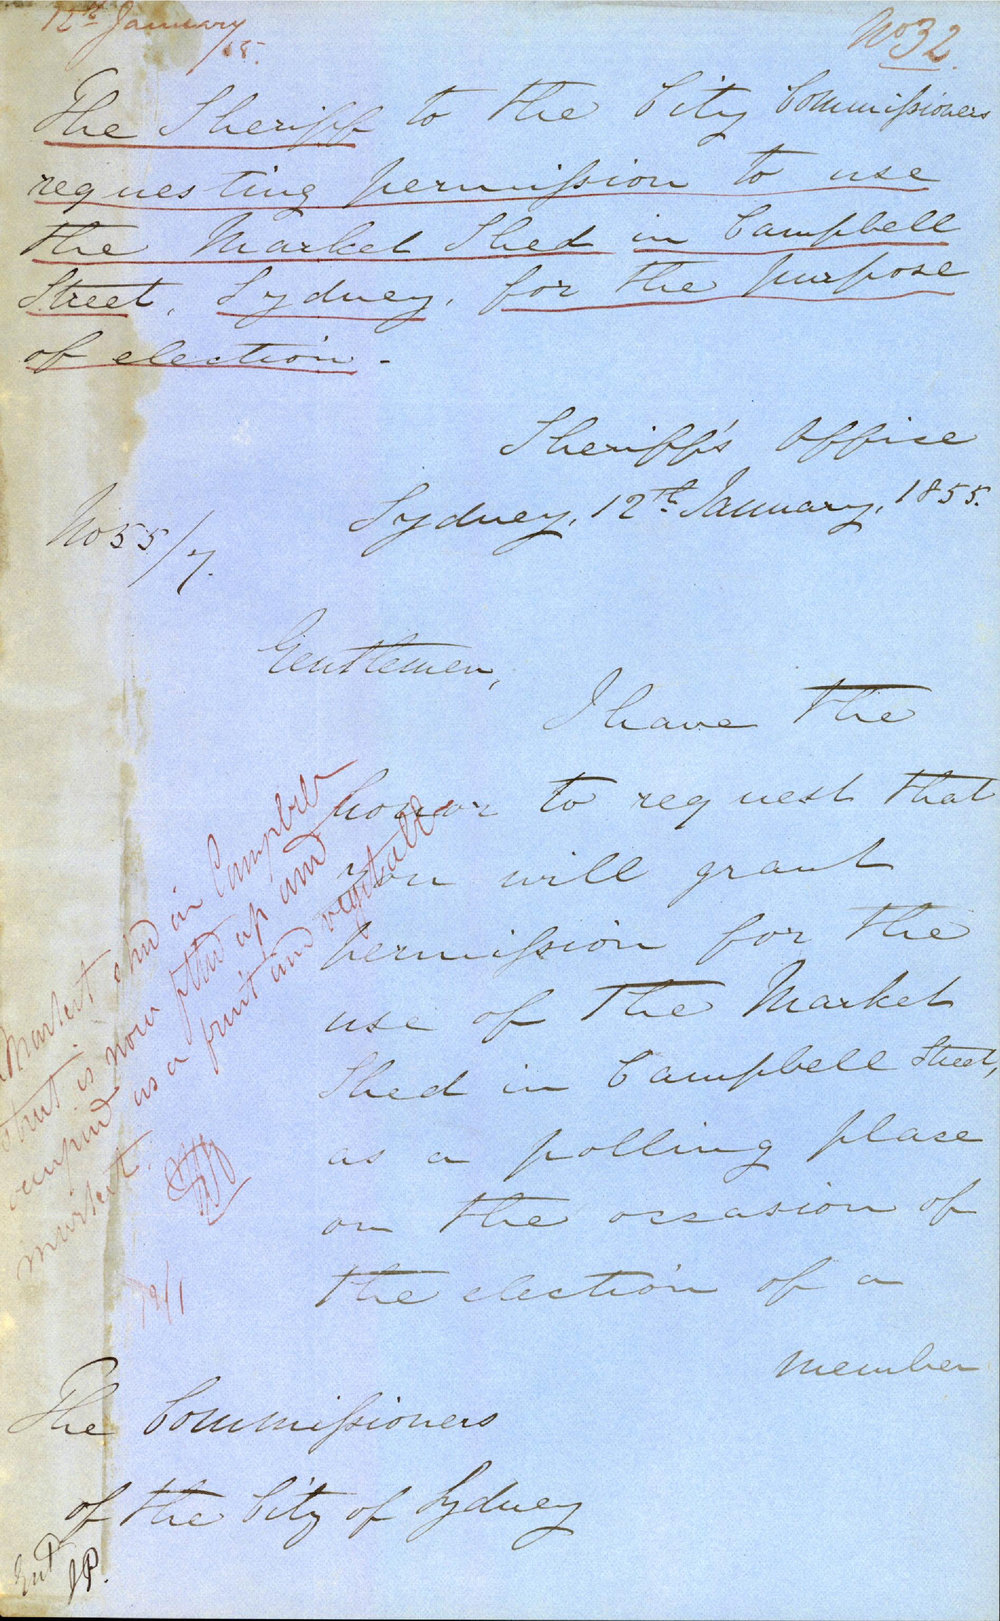 12th January
/55.
No 32.
The Sheriff to the City Commissioners
requesting permission to use
the Market Shed in Campbell
Street, Sydney, for the purpose
of election -
Sheriff's Office
Sydney, 12th January, 1855.
No 55/7.
Gentlemen,
I have the
honor to request that
you will grant
permission for the
use of the Market
Shed in Campbell Street,
as a polling place
on the occasion of
the election of a
member
Market shed in Campbell
street is now fitted up and
occupied as a fruit and vegetable
market.
19/1
The Commissioners
of the City of Sydney
Entd
JP.